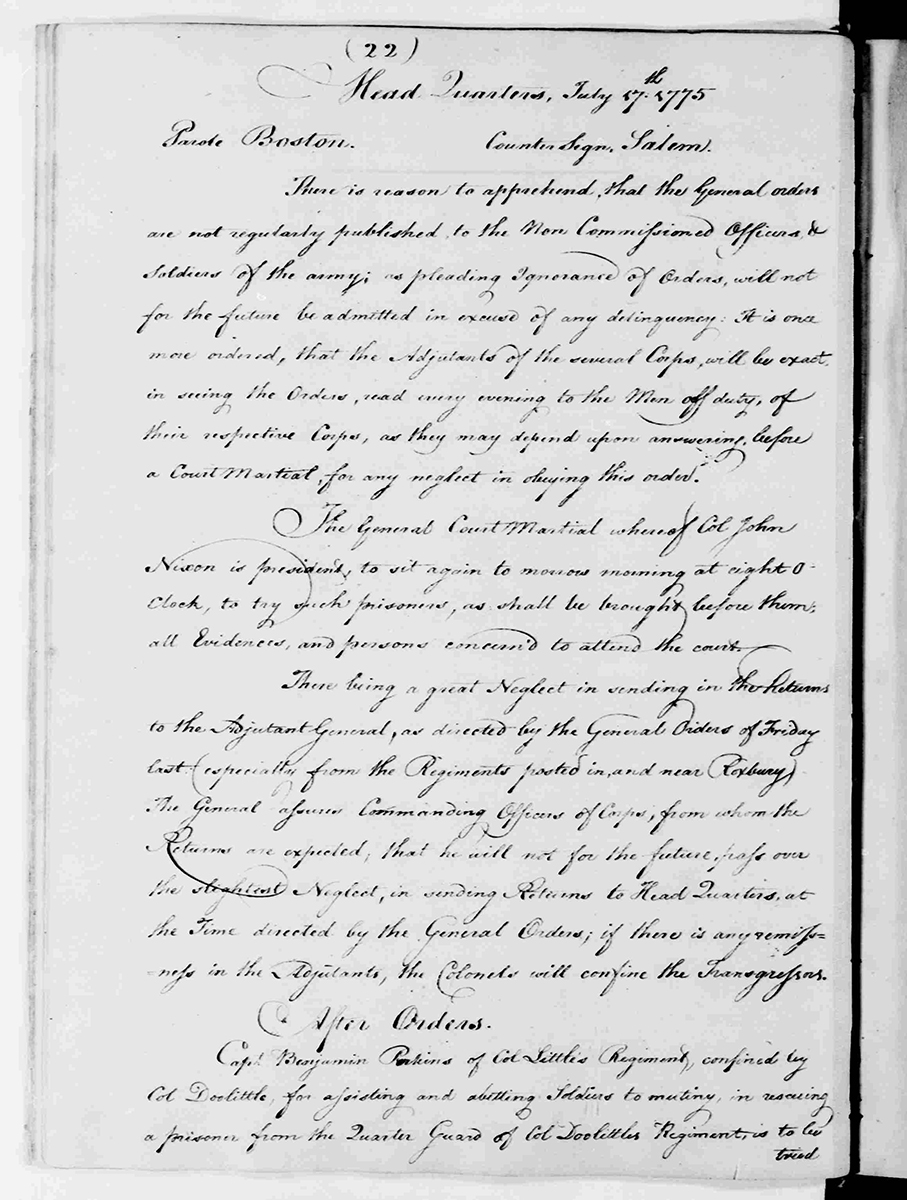 (22)
Head Quarters, July 17.th 1775
Parole Boston. Counter Sign, Salem.
There is reason to apprehend, that the General orders
are not regularly published, to the Non Commissioned Officers, &
Soldiers of the army; as pleading Ignorance of Orders, will not
for the future be admitted in excuse of any delinquency: It is once
more ordered, that the Adjutants of the several Corps, will be exact,
in seeing the Orders, read every evening to the Men off duty, of
their respective Corps, as they may depend upon answering, before
a Court Martial, for any neglect in obeying this order.
The General Court Martial whereof Col John
Nixon is president, to sit again to morrow morning at eight O'
Clock, to try such prisoners, as shall be brought before them;
all Evidences, and persons concern'd to attend the court.
There being a great Neglect in sending in the Returns
to the Adjutant General, as directed by the General Orders of Friday
last. (especially from the Regiments posted in, and near Roxbury)
The General assures Commanding Officers of Corps, from whom the
Returns are expected; that he will not for the future, pass over
the slightest Neglect, in sending Returns to Head Quarters, at
the Time directed by the General Orders; if there is any remiss=
=ness in the Adjutants, the Colonels will confine the Transgressors.
After Orders.
Capt. Benjamin Perkins of Col Little's Regiment, confined by
Col Doolittle, for assisting and abetting Soldiers to mutiny, in rescuing
a prisoner from the Quarter Guard of Col Doolittles Regiment, is to be
tried